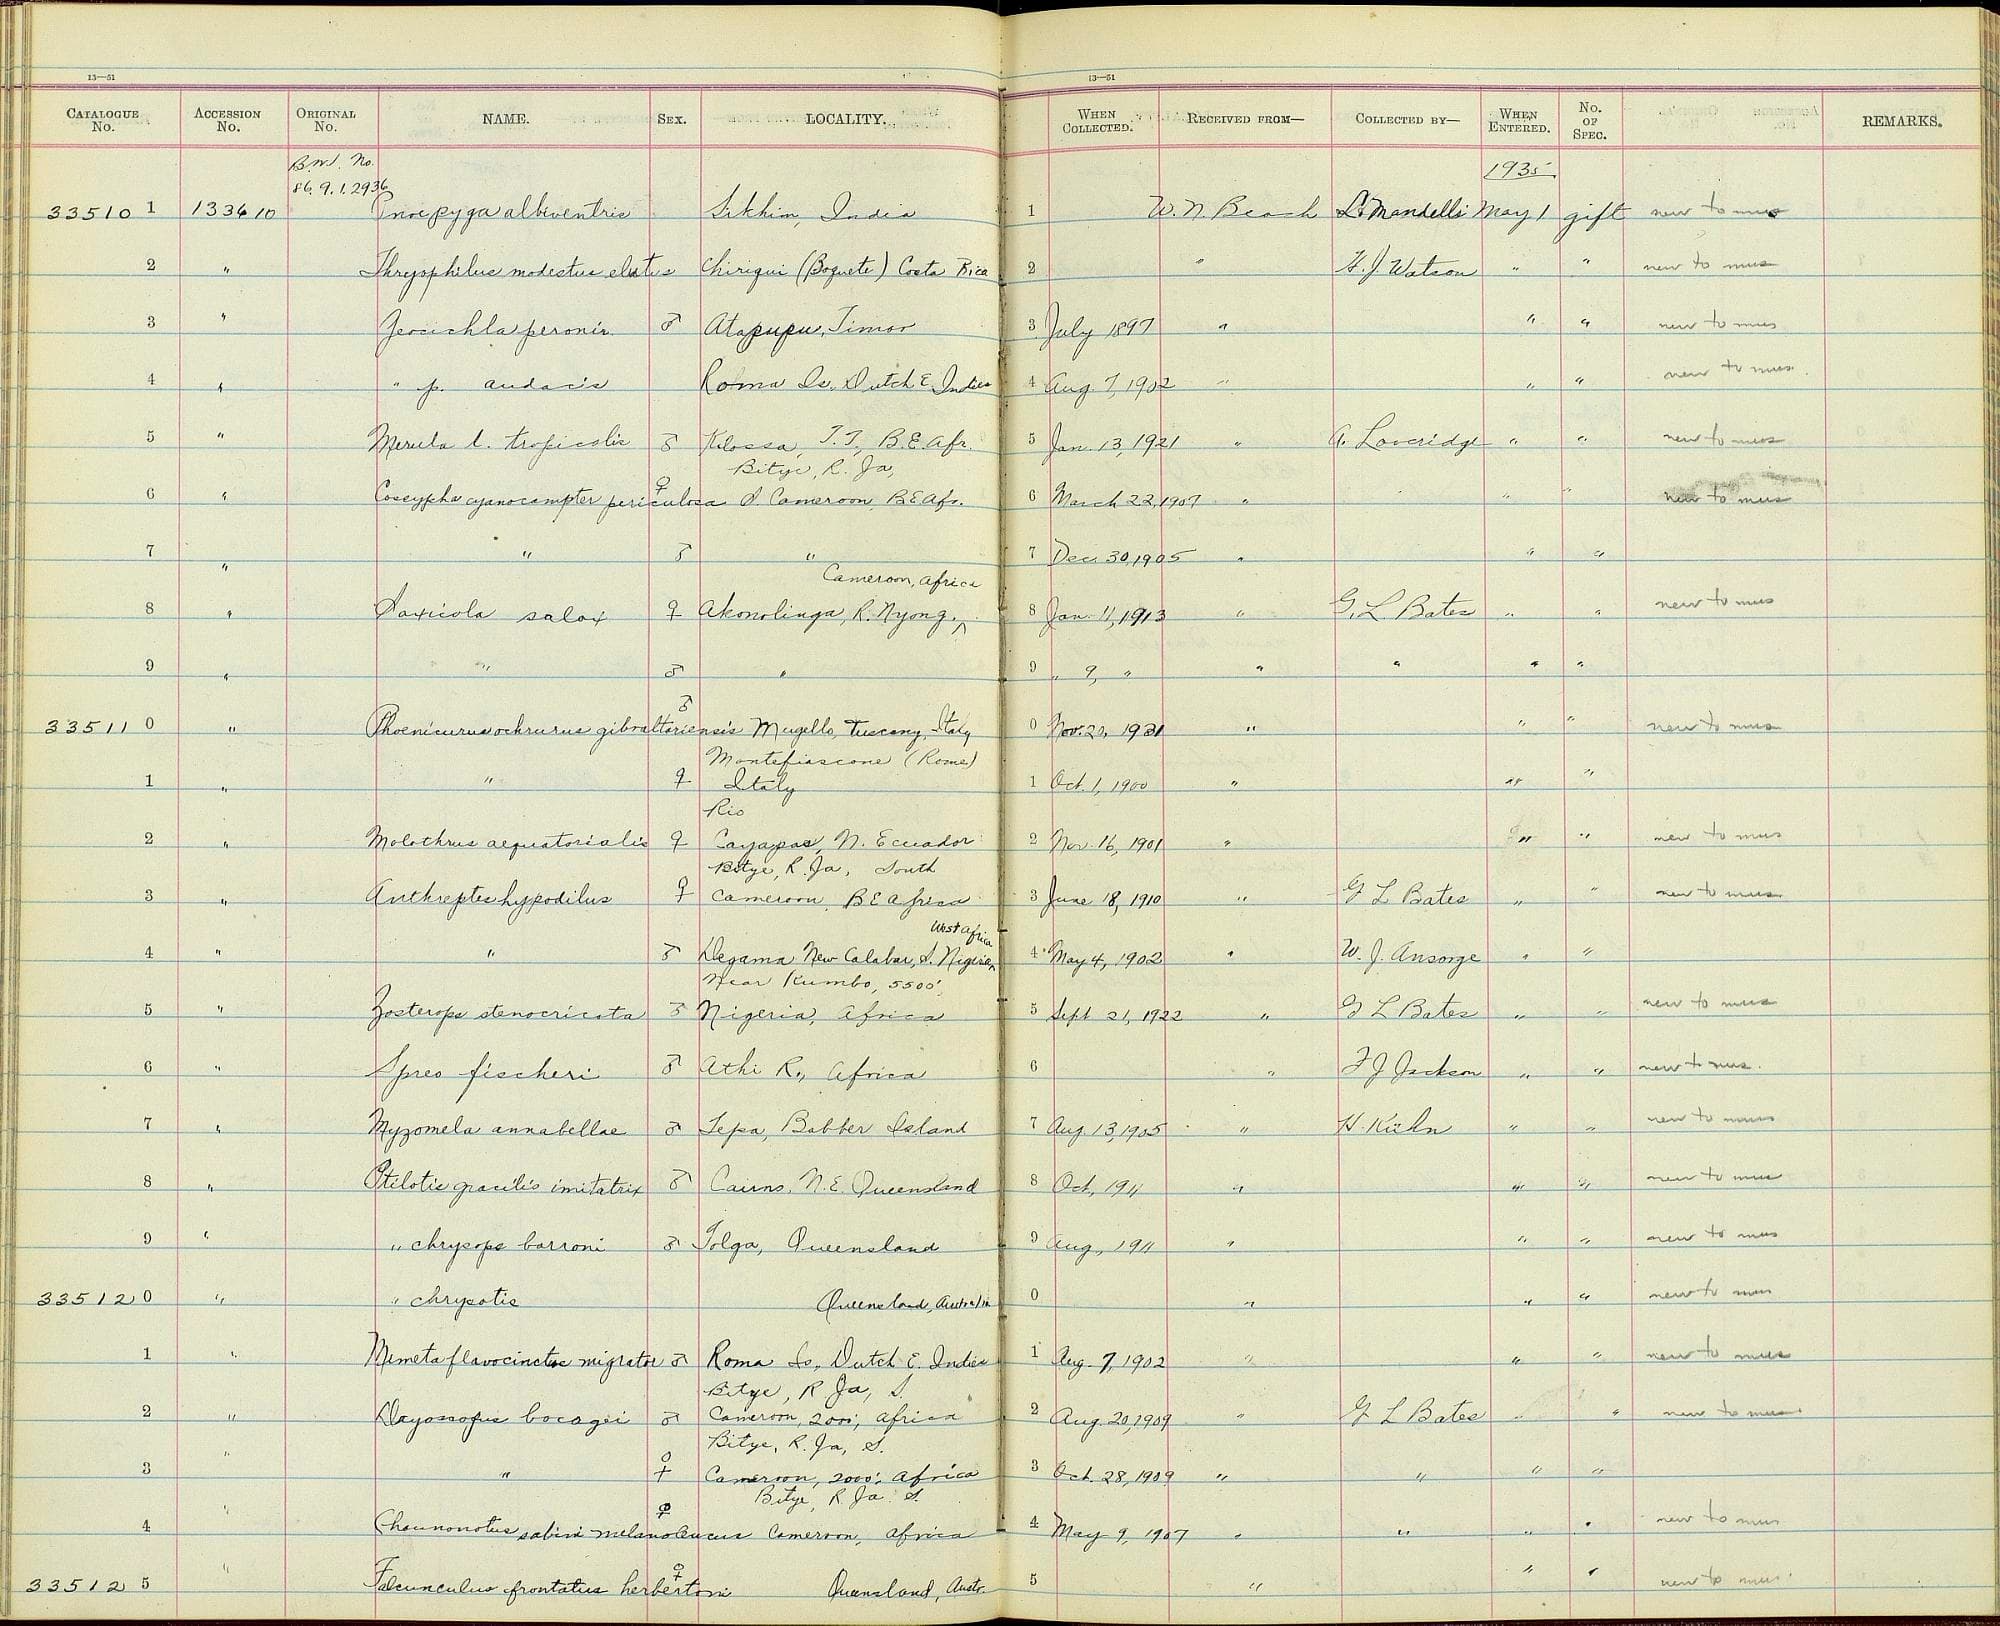 13—51 13—51
CATALOGUE No. ACCESSION No. ORIGINAL No. NAME. SEX. LOCALITY. WHEN COLLECTED. RECEIVED FROM— COLLECTED BY— WHEN ENTERED. No. OF SPEC. REMARKS.
B.M. No. 1935
86.9.1.2936
33510 1 133610 Pnoepyga albiventris Sikhim, India 1 W. N. Beach L. Mandelli May 1 gift new to mus
2 " Thryophilus modestus elutus Chiriqui (Boquete) Costa Rica 2 " H. J. Watson " " new to mus
3 " Geocichla peronii ♂ Atapupu, Timor 3 July 1897 " " " new to mus
4 " " p. audacis Roma Is. Dutch E. Indies 4 Aug. 7, 1902 " " " new to mus.
5 " Merula l. tropicalis ♂ Kilossa, T.T., B.E. Afr. 5 Jan. 13, 1921 " A. Loveridge " " new to mus
Bitye, R. Ja,
6 " Cossypha cyanocampter periculosa ♀ S. Cameroon, B E Afr. 6 March 22, 1907 " " " new to mus
7 " " ♂ " 7 Dec. 30, 1905 " " "
Cameroon, Africa
8 " Saxicola salax ♀ Akonolinga, R. Nyong, 8 Jan. 11, 1913 " G. L. Bates " " new to mus
9 " " ♂ " 9 " 9, " " " " "
33511 0 " Phoenicurus ochrurus gibraltariensis ♂ Mugello, Tuscany, Italy 0 Nov. 20, 1931 " " " new to mus
Montefiascone (Rome)
1 " " ♀ Italy 1 Oct. 1, 1900 " " "
Rio
2 " Molothrus aequatorialis ♀ Cayapas, N. Ecuador 2 Nov. 16, 1901 " " " new to mus
Bitye, R. Ja, South
3 " Anthreptes hypodilus ♀ Cameroon, B E Africa 3 June 18, 1910 " G L Bates " " new to mus
West Africa
4 " " ♂ Degama New Calabar, S. Nigeria 4 May 4, 1902 " W. J. Ansorge " "
Near Kumbo, 5500'
5 " Zosterops stenocricota ♂ Nigeria, Africa 5 Sept 21, 1922 " G L Bates " " new to mus
6 " Spreo fischeri ♂ Athi R., Africa 6 " F J Jackson " " new to mus.
7 " Myzomela annabellae ♂ Tepa, Babber Island 7 Aug. 13, 1905 " H. Kühn " " new to mus
8 " Ptilotis gracilis imitatrix ♂ Cairns, N. E. Queensland 8 Oct, 1911 " " " new to mus
9 " " chrysops barroni ♂ Tolga, Queensland 9 Aug., 1911 " " " new to mus
33512 0 " " chrysotis Queensland, Australia 0 " " " new to mus
1 " Mimeta flavocinctus migrator ♂ Roma Is., Dutch E. Indies 1 Aug. 7, 1902 " " " new to mus
Bitye, R Ja, S.
2 " Dryoscopus bocagei ♂ Cameroon, 2000', Africa 2 Aug. 20, 1909 " G L Bates " " new to mus
Bitye, R. Ja, S.
3 " " ♀ Cameroon, 2000', Africa 3 Oct. 28, 1909 " " " "
Bitye, R. Ja S.
4 " Chaunonotus sabini melanoleucus ♀ Cameroon, Africa 4 May 9, 1907 " " " " new to mus
33512 5 " Falcunculus frontatus herbertoni ♀ Queensland, Austr. 5 " " " new to mus.